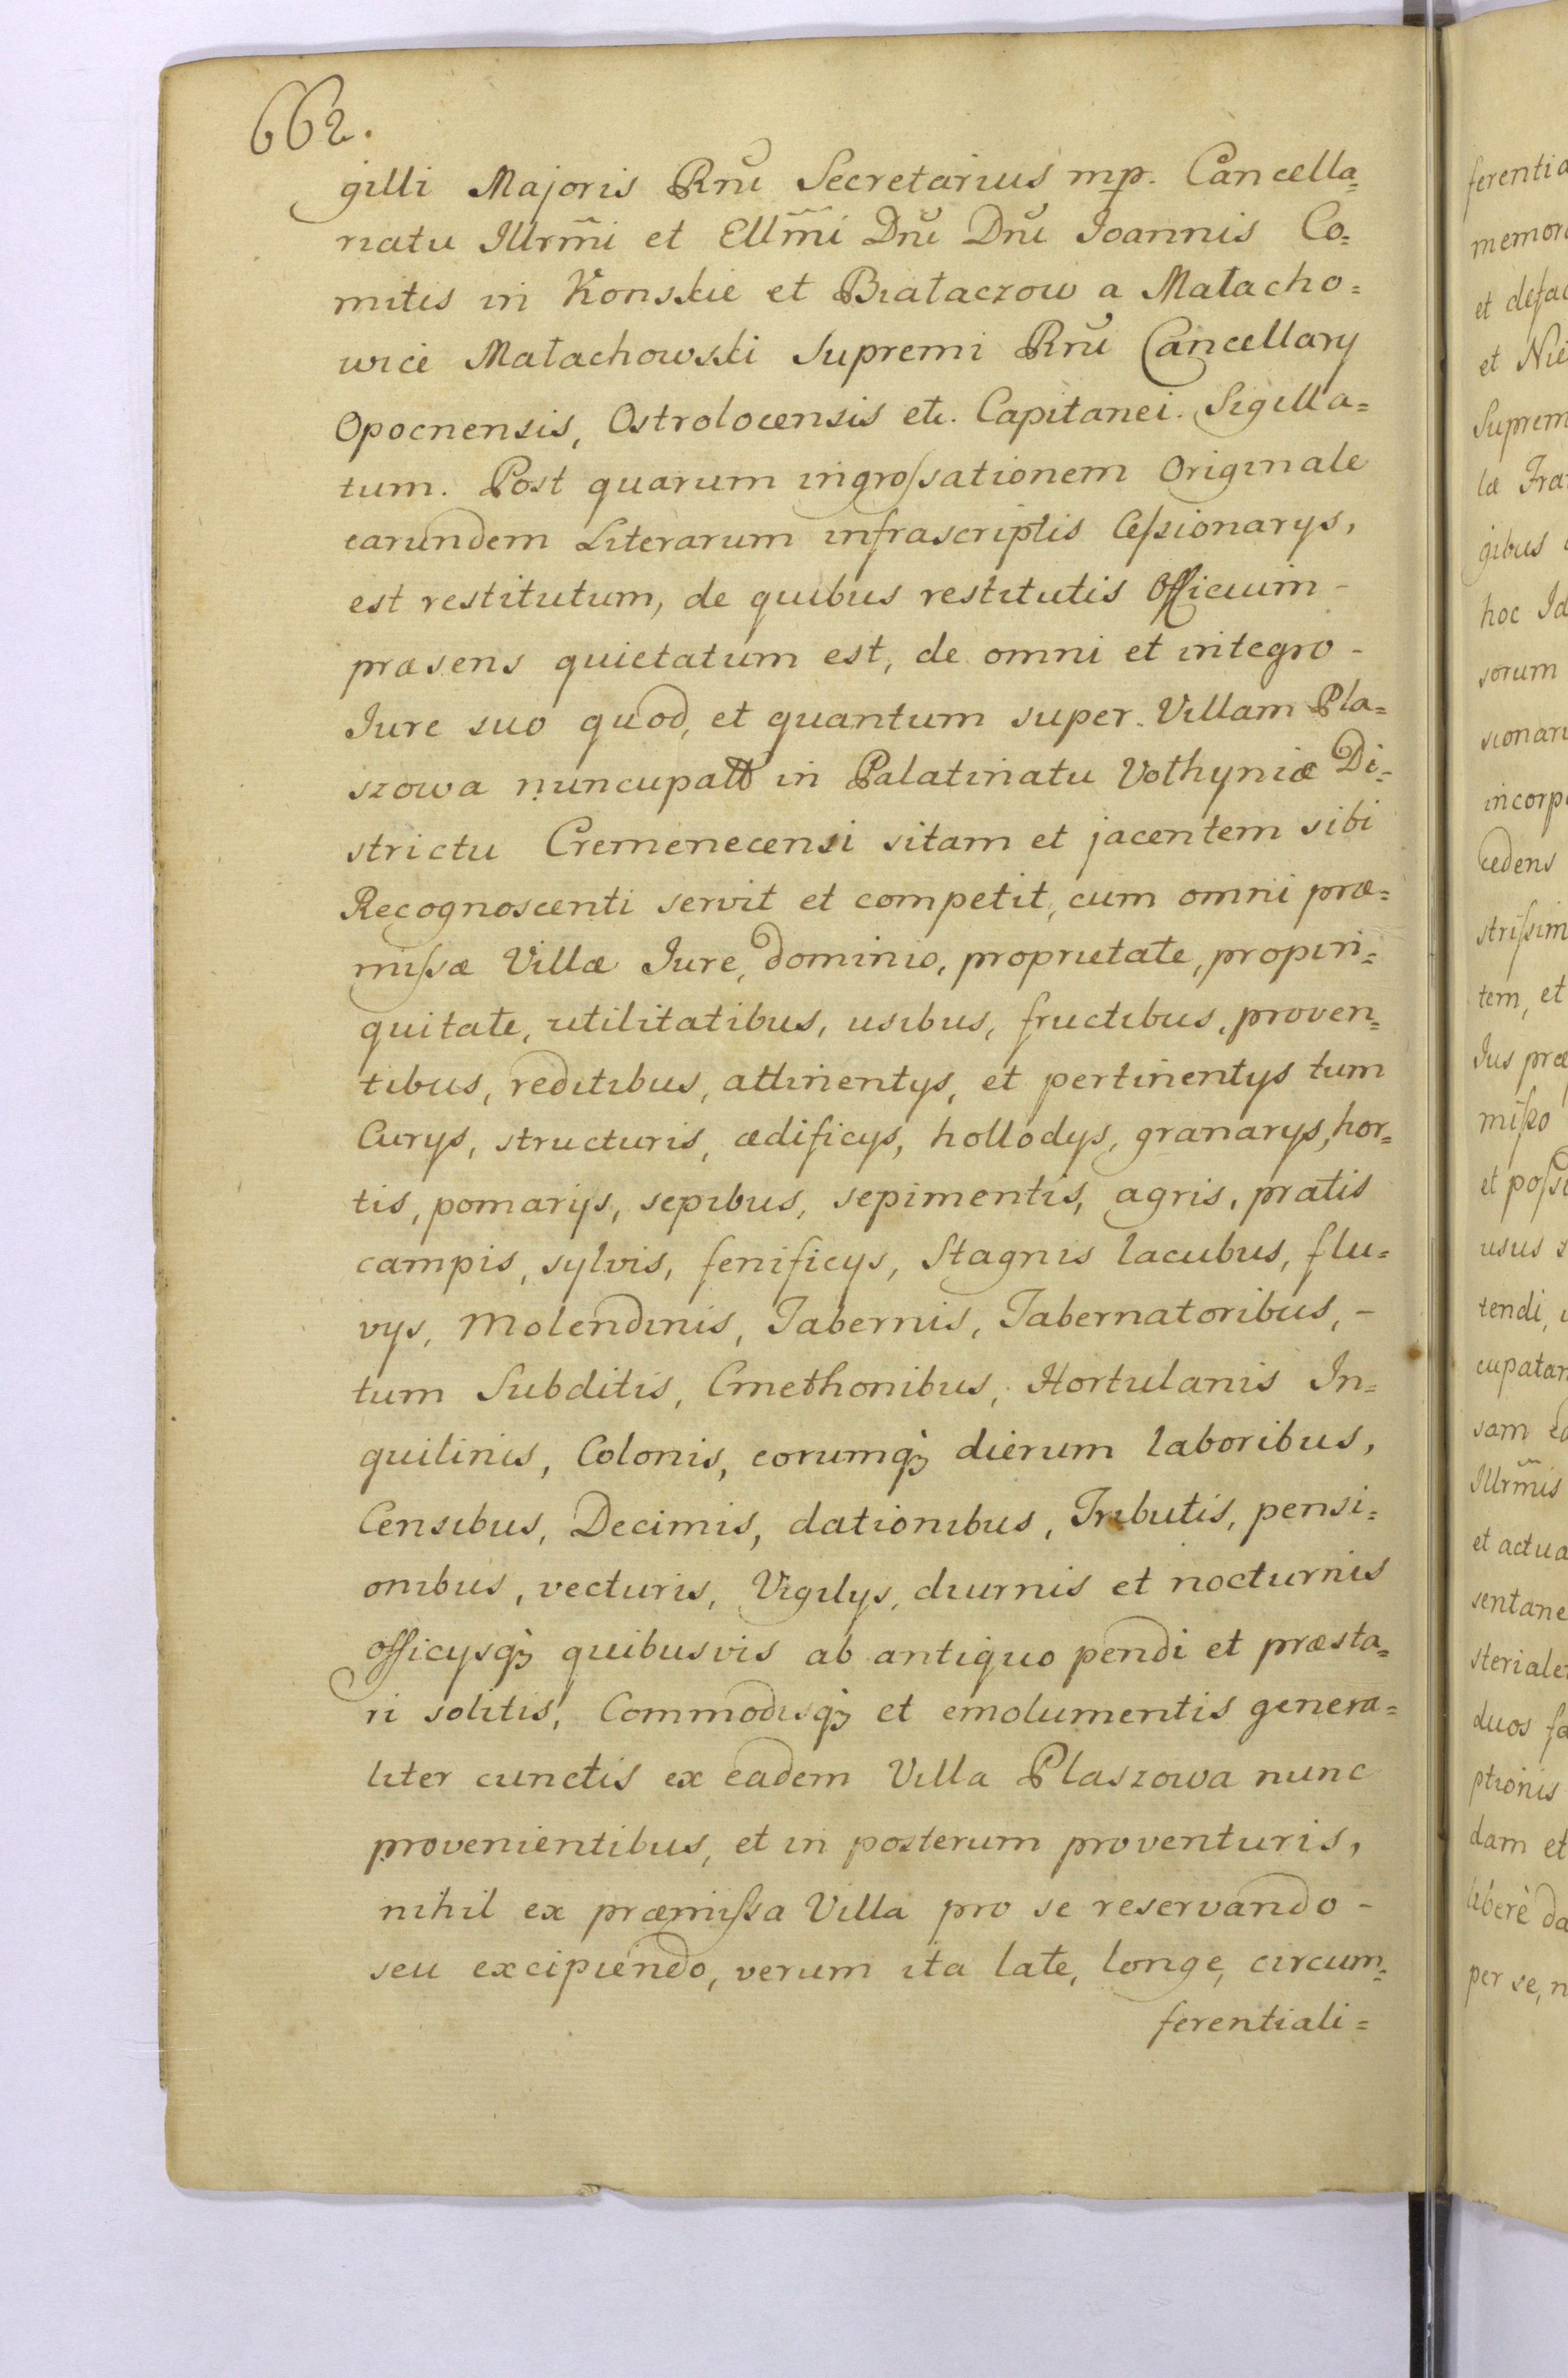 662.
gilli Majoris Rnĩ Secretarius mp. Cancella=
riatu Illrm̃i et Ellm̃i Dnĩ Dnĩ Joannis Co=
mitis in Konskie et Białaczow a Małacho=
wice Małachowski Supremi Rnĩ Cancellarÿ
Opocnensis, Ostrolocensis etc. Capitanei. Sigilla=
tum. Post quarum ingroſsationem Originale
earundem Literarum infrascriptis Ceſsionarÿs,
est restitutum, de quibus restitutis Officium -
præsens quietatum est, de omni et integro -
Jure suo quod, et quantum super Villam Pla=
szowa nuncupatt in Palatinatu Vołhyniæ Di=
strictu Cremenecensi sitam et jacentem sibi
Recognoscenti servit et competit, cum omni præ=
miſsæ Villæ Jure, dominio, proprietate, propin=
quitate, utilitatibus, usibus, fructibus, proven=
tibus, reditibus, attinentÿs, et pertinentÿs tum
Curÿs, structuris, ædificÿs, hollodÿs, granarÿs, hor=
tis, pomarÿs, sepibus, sepimentis, agris, pratis
campis, sylvis, fenificÿs, Stagnis lacubus, flu=
vÿs, Molendinis, Tabernis, Tabernatoribus, -
tum Subditis, Cmethonibus, Hortulanis In=
quilinis, Colonis, eorumqꝫ dierum laboribus,
Censibus, Decimis, dationibus, Tributis, pensi=
onibus, vecturis, Vigilÿs, diurnis et nocturnis
officÿsqꝫ quibusvis ab antiquo pendi et præsta=
ri solitis, Commodisqꝫ et emolumentis genera=
liter cunctis ex eadem Villa Plaszowa nunc
provenientibus, et in posterum proventuris,
nihil ex præmiſsa Villa pro se reservando -
seu excipiendo, verum ita late, longe, circum=
ferentiali=